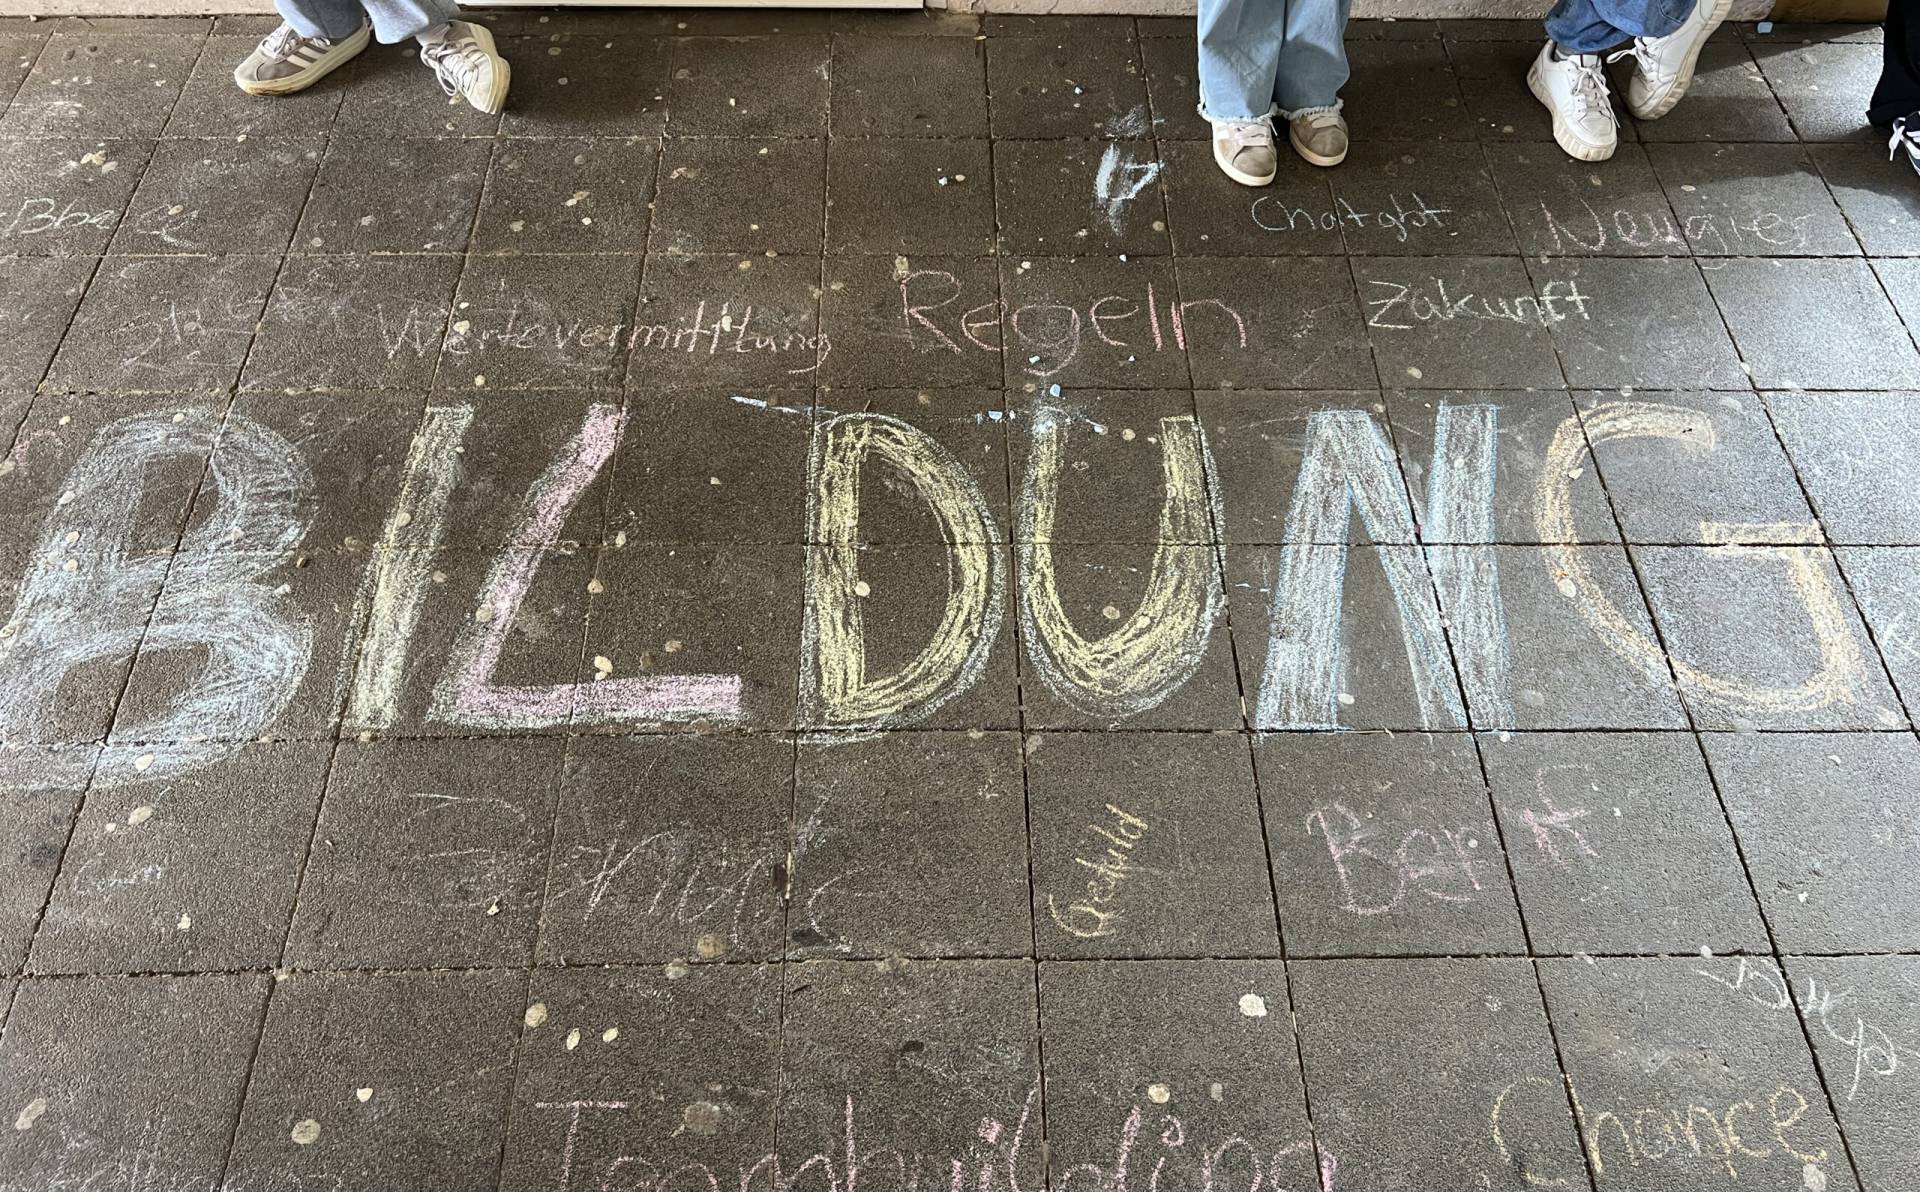 Chatgbt Neugier
Wertevermittlung Regeln Zukunft
BILDUNG
Geduld Beruf
Chance
Teambuilding